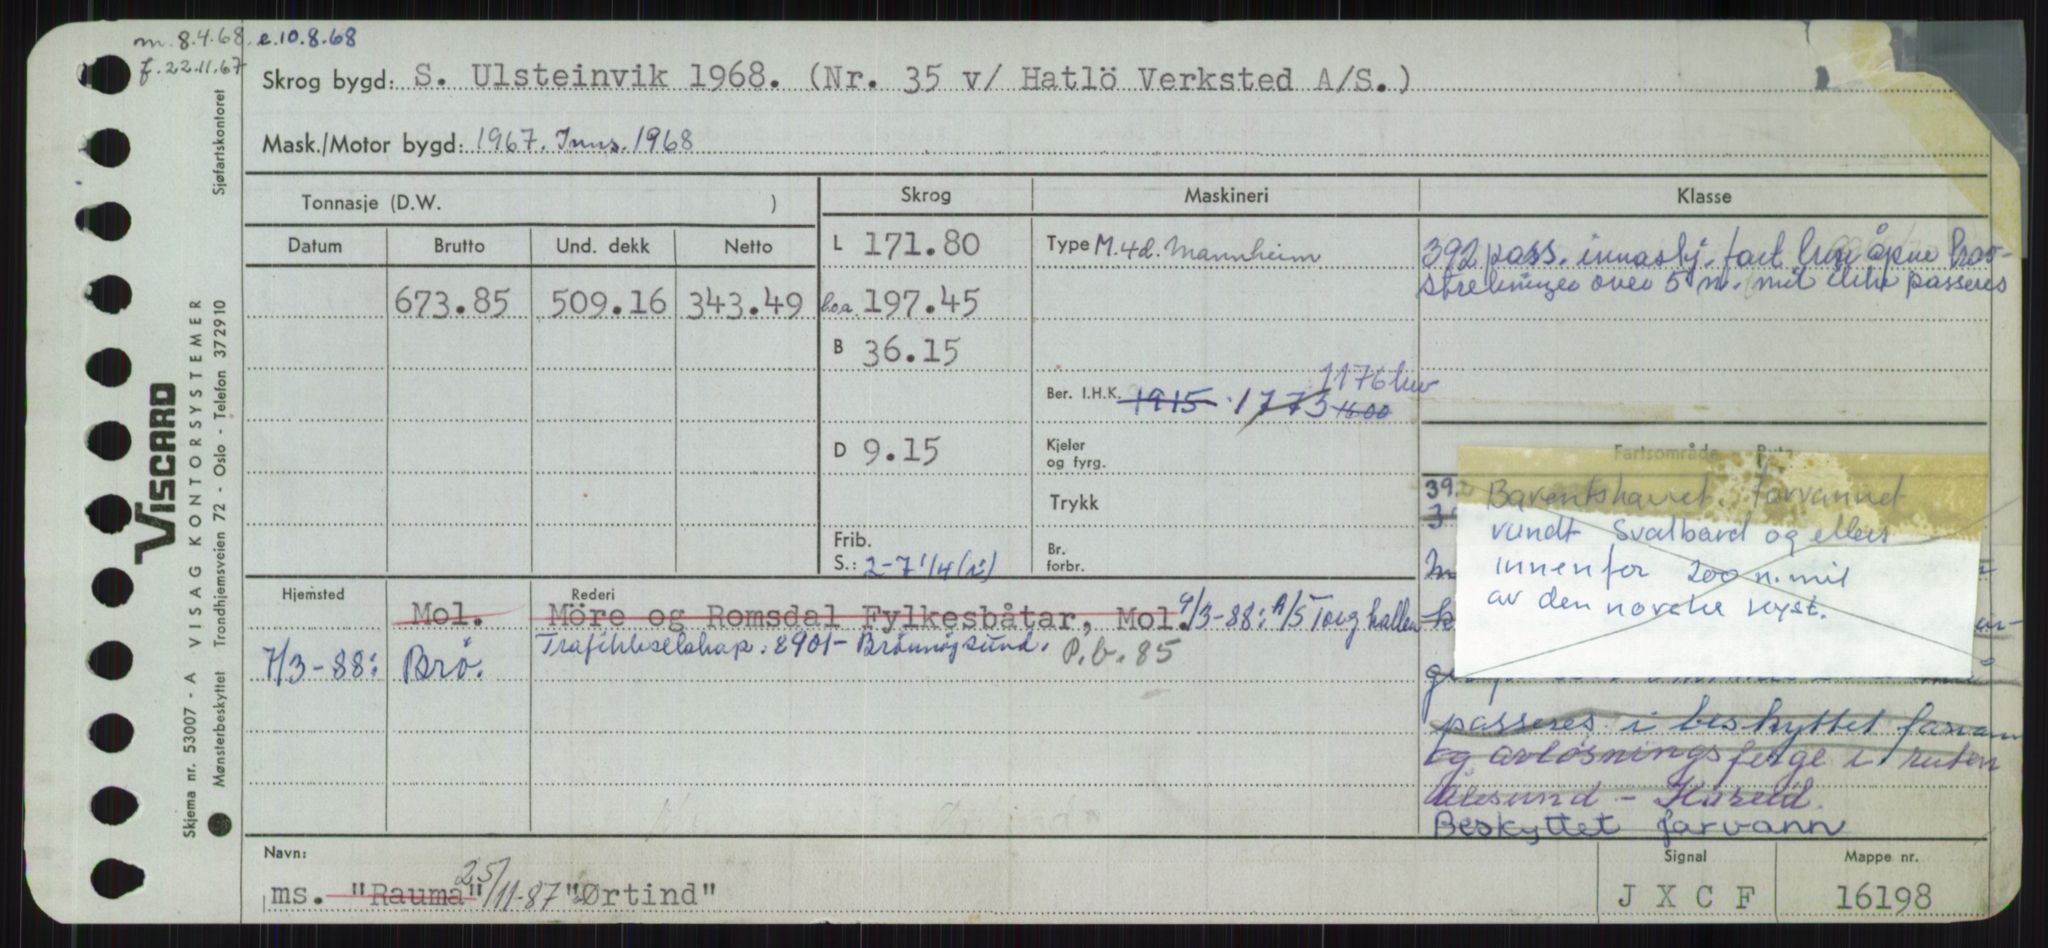 m. 8.4.68. e.10.8.68
f. 22.11.67
Skrog bygd: S. Ulsteinvik 1968. (Nr. 35 v/ Hatlö Verksted A/S.)
Mask./Motor bygd: 1967. Inns. 1968
Tonnasje (D.W. )
Skrog
Maskineri
Klasse
Datum
Brutto
Und. dekk
Netto
673.85
509.16
343.49
L 171.80
l.o.a. 197.45
B 36.15
D 9.15
Frib.
S.: 2-7 1/4 (i)
Type M. 4d. Mannheim
1176 kw
Ber. I.H.K. 1915 1773 1600
Kjeler
og fyrg.
Trykk
Br.
forbr.
392 pass. innaskj. fart hvor åpne hav-
strekninger over 5 n. mil ikke passeres
Fartsområde Ruta
39
Barentshavet. farvannet
rundt Svalbard og ellers
innenfor 200 n. mil
av den norske kyst.
passeres i beskyttet farvann
og avløsningsferge i ruten
Ålesund - Hareid.
Beskyttet farvann
Hjemsted
Rederi
Mol.
Möre og Romsdal Fylkesbåtar, Mol. 9/3-88: A/S Torghatten
Trafikkselskap. 8901- Brönnöysund. P.b. 85
7/3-88: Brö.
Navn:
ms. "Rauma" 25/11-87 "Ørtind"
Signal
J X C F
Mappe nr.
16198
Viscard
VISAG KONTORSYSTEMER
Skjema nr. 53007 - A
Mønsterbeskyttet Trondhjemsveien 72 - Oslo - Telefon 372910
Sjøfartskontoret